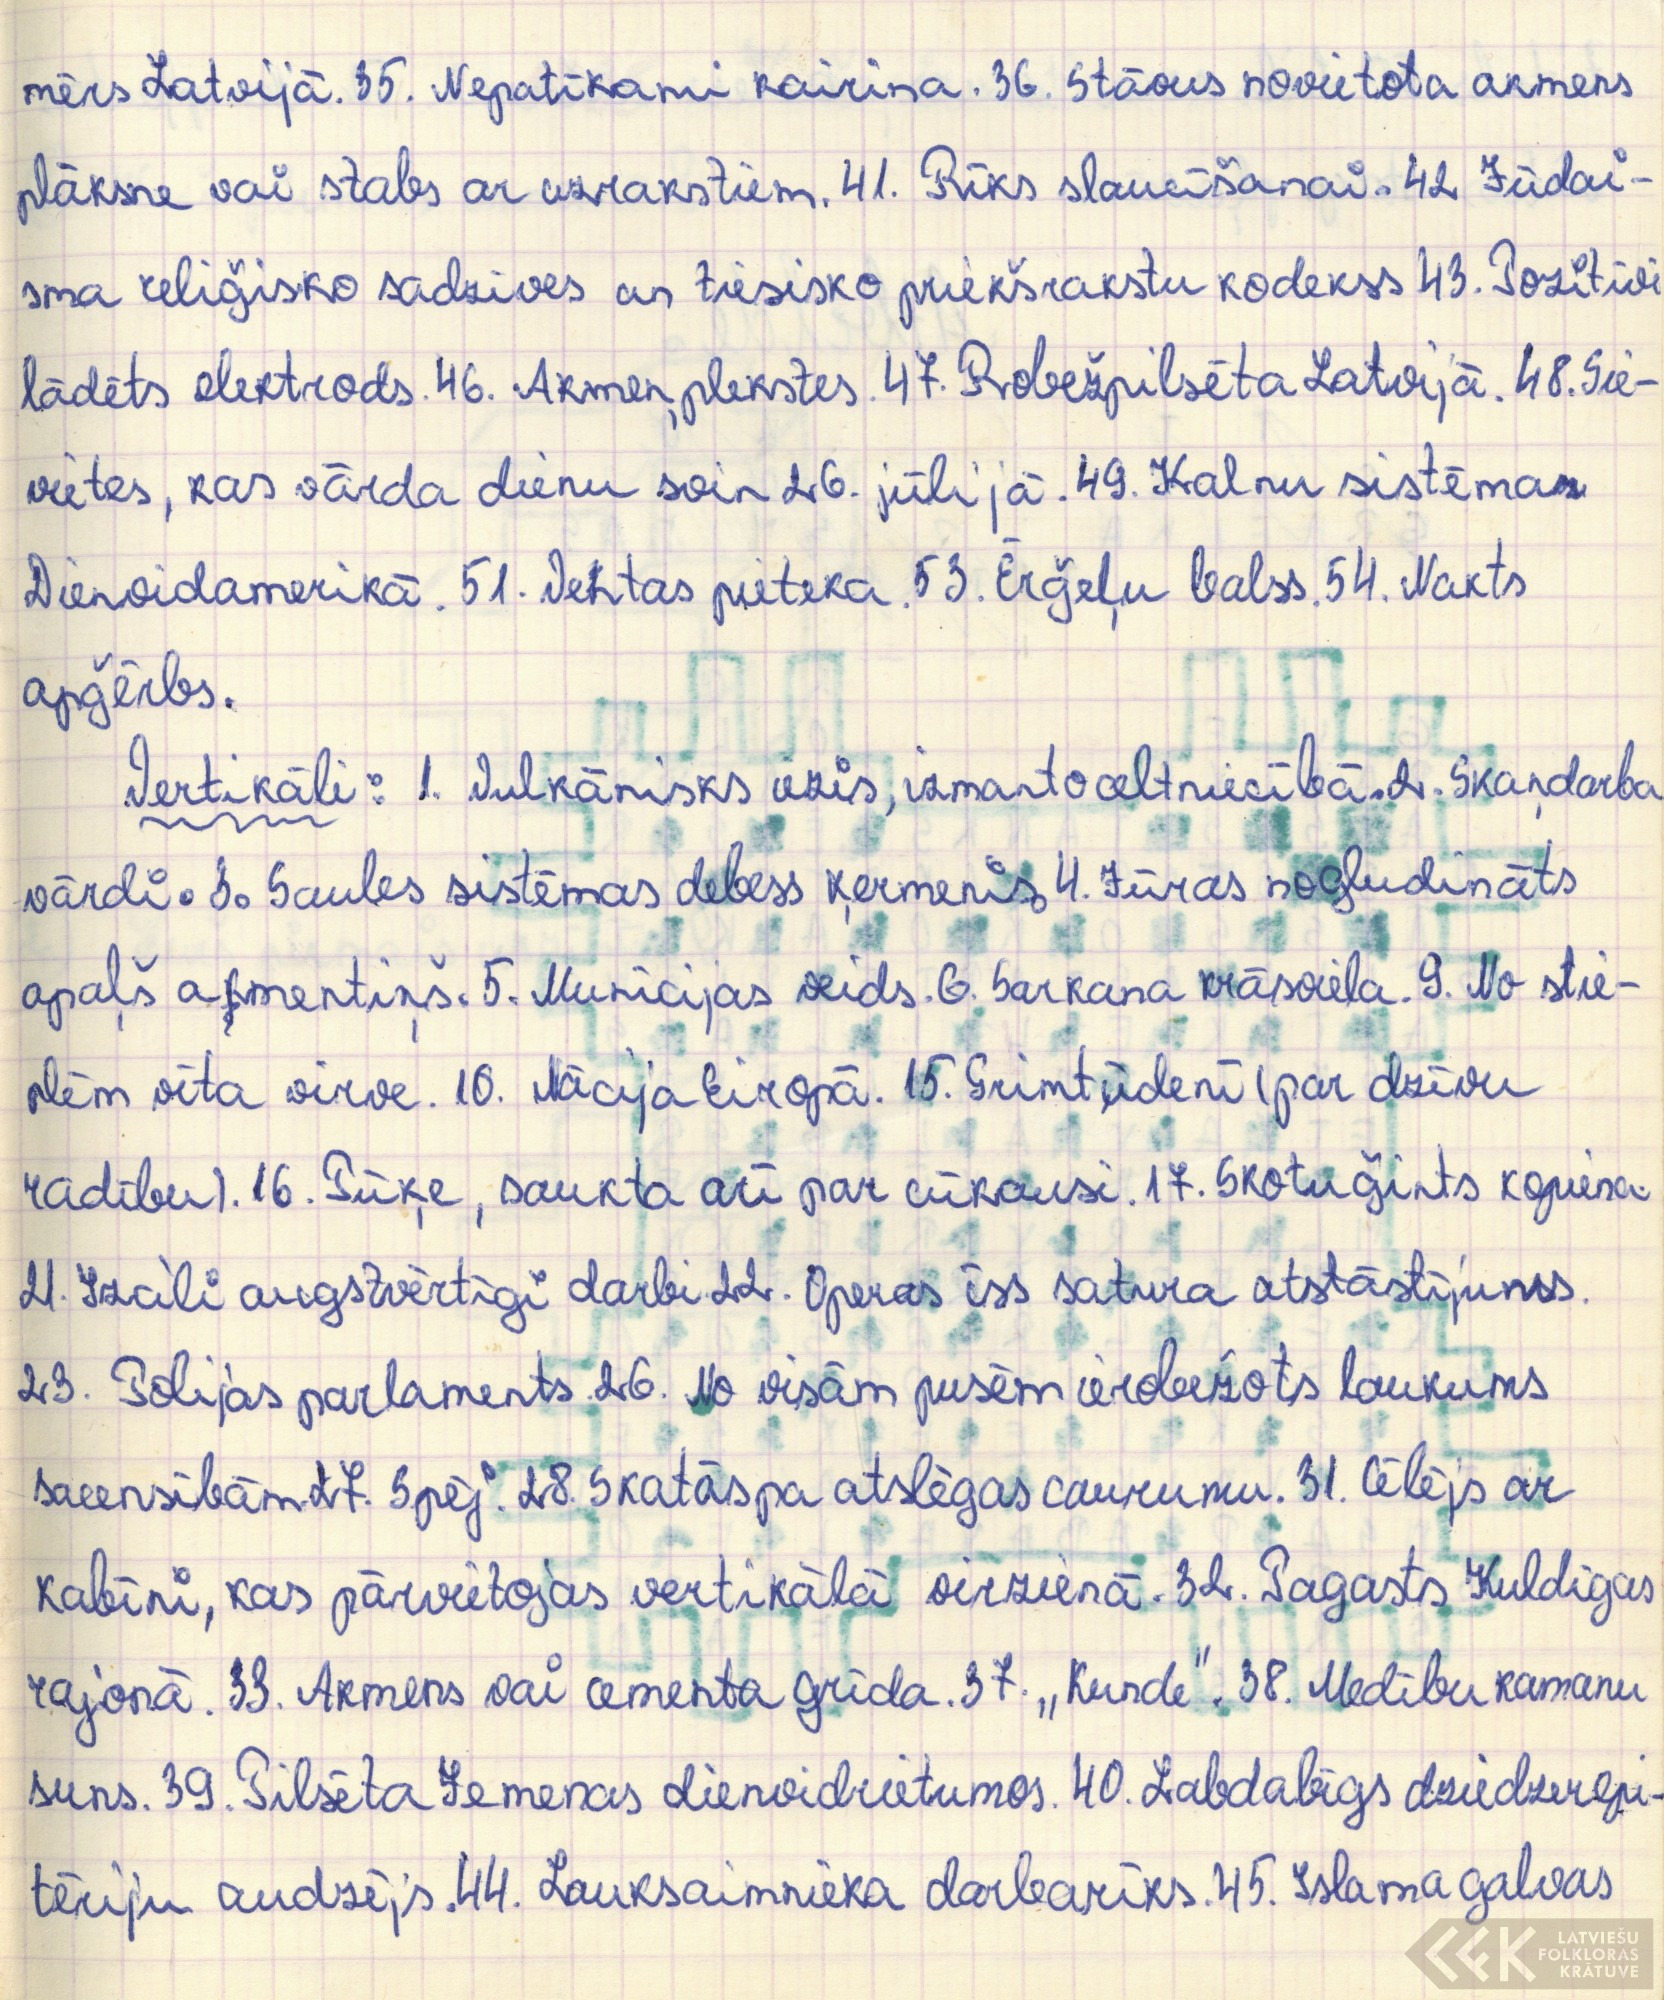 mērs Latvijā. 35. Nepatīkami kairina. 36. Stāvus novietota akmens
plāksne vai stabs ar uzrakstiem. 41. Rīks slaucīšanai. 42 Jūdai-
sma reliģisko sadzīves un tiesisko priekšrakstu kodekss 43. Pozitīvi
lādēts elektrods. 46. Akmeņplekstes. 47. Robežpilsēta Latvijā. 48. Sie-
vietes, kas vārda dienu svin 26. jūlijā. 49. Kalnu sistēma
Dienvidamerikā. 51. Ventas pieteka. 53. Ērģeļu balss. 54. Nakts
apģērbs.
Vertikāli: 1. Vulkānisks iezis, izmanto celtniecībā. 2. Skaņdarba
vārdi. 3. Saules sistēmas debess ķermenis. 4. Jūras nogludināts
apaļš akmentiņš. 5. Munīcijas veids. 6. Sarkana krāsviela. 9. No stie-
plēm vīta virve. 10. Nācija Eiropā. 15. Grimt ūdenī (par dzīvu
radību). 16. Pūķe, saukta arī par cūkausi. 17. Skotu ģints kopiena.
21. Izcili augstvērtīgi darbi. 22. Operas īss satura atstāstījums.
23. Polijas parlaments. 26. No visām pusēm ierobežots laukums
sacensībām. 27. Spēj. 28. Skatās pa atslēgas caurumu. 31. Cēlējs ar
kabīni, kas pārvietojas vertikālā virzienā. 32. Pagasts Kuldīgas
rajonā. 33. Akmens vai cementa grīda. 37. „Kunde". 38. Medību kamanu
suns. 39. Pilsēta Jemenas dienvidrietumos. 40. Labdabīgs dziedzerepi-
tēriju audzējs. 44. Lauksaimnieka darbarīks. 45. Islama galvas
LATVIEŠU
FOLKLORAS
KRĀTUVE